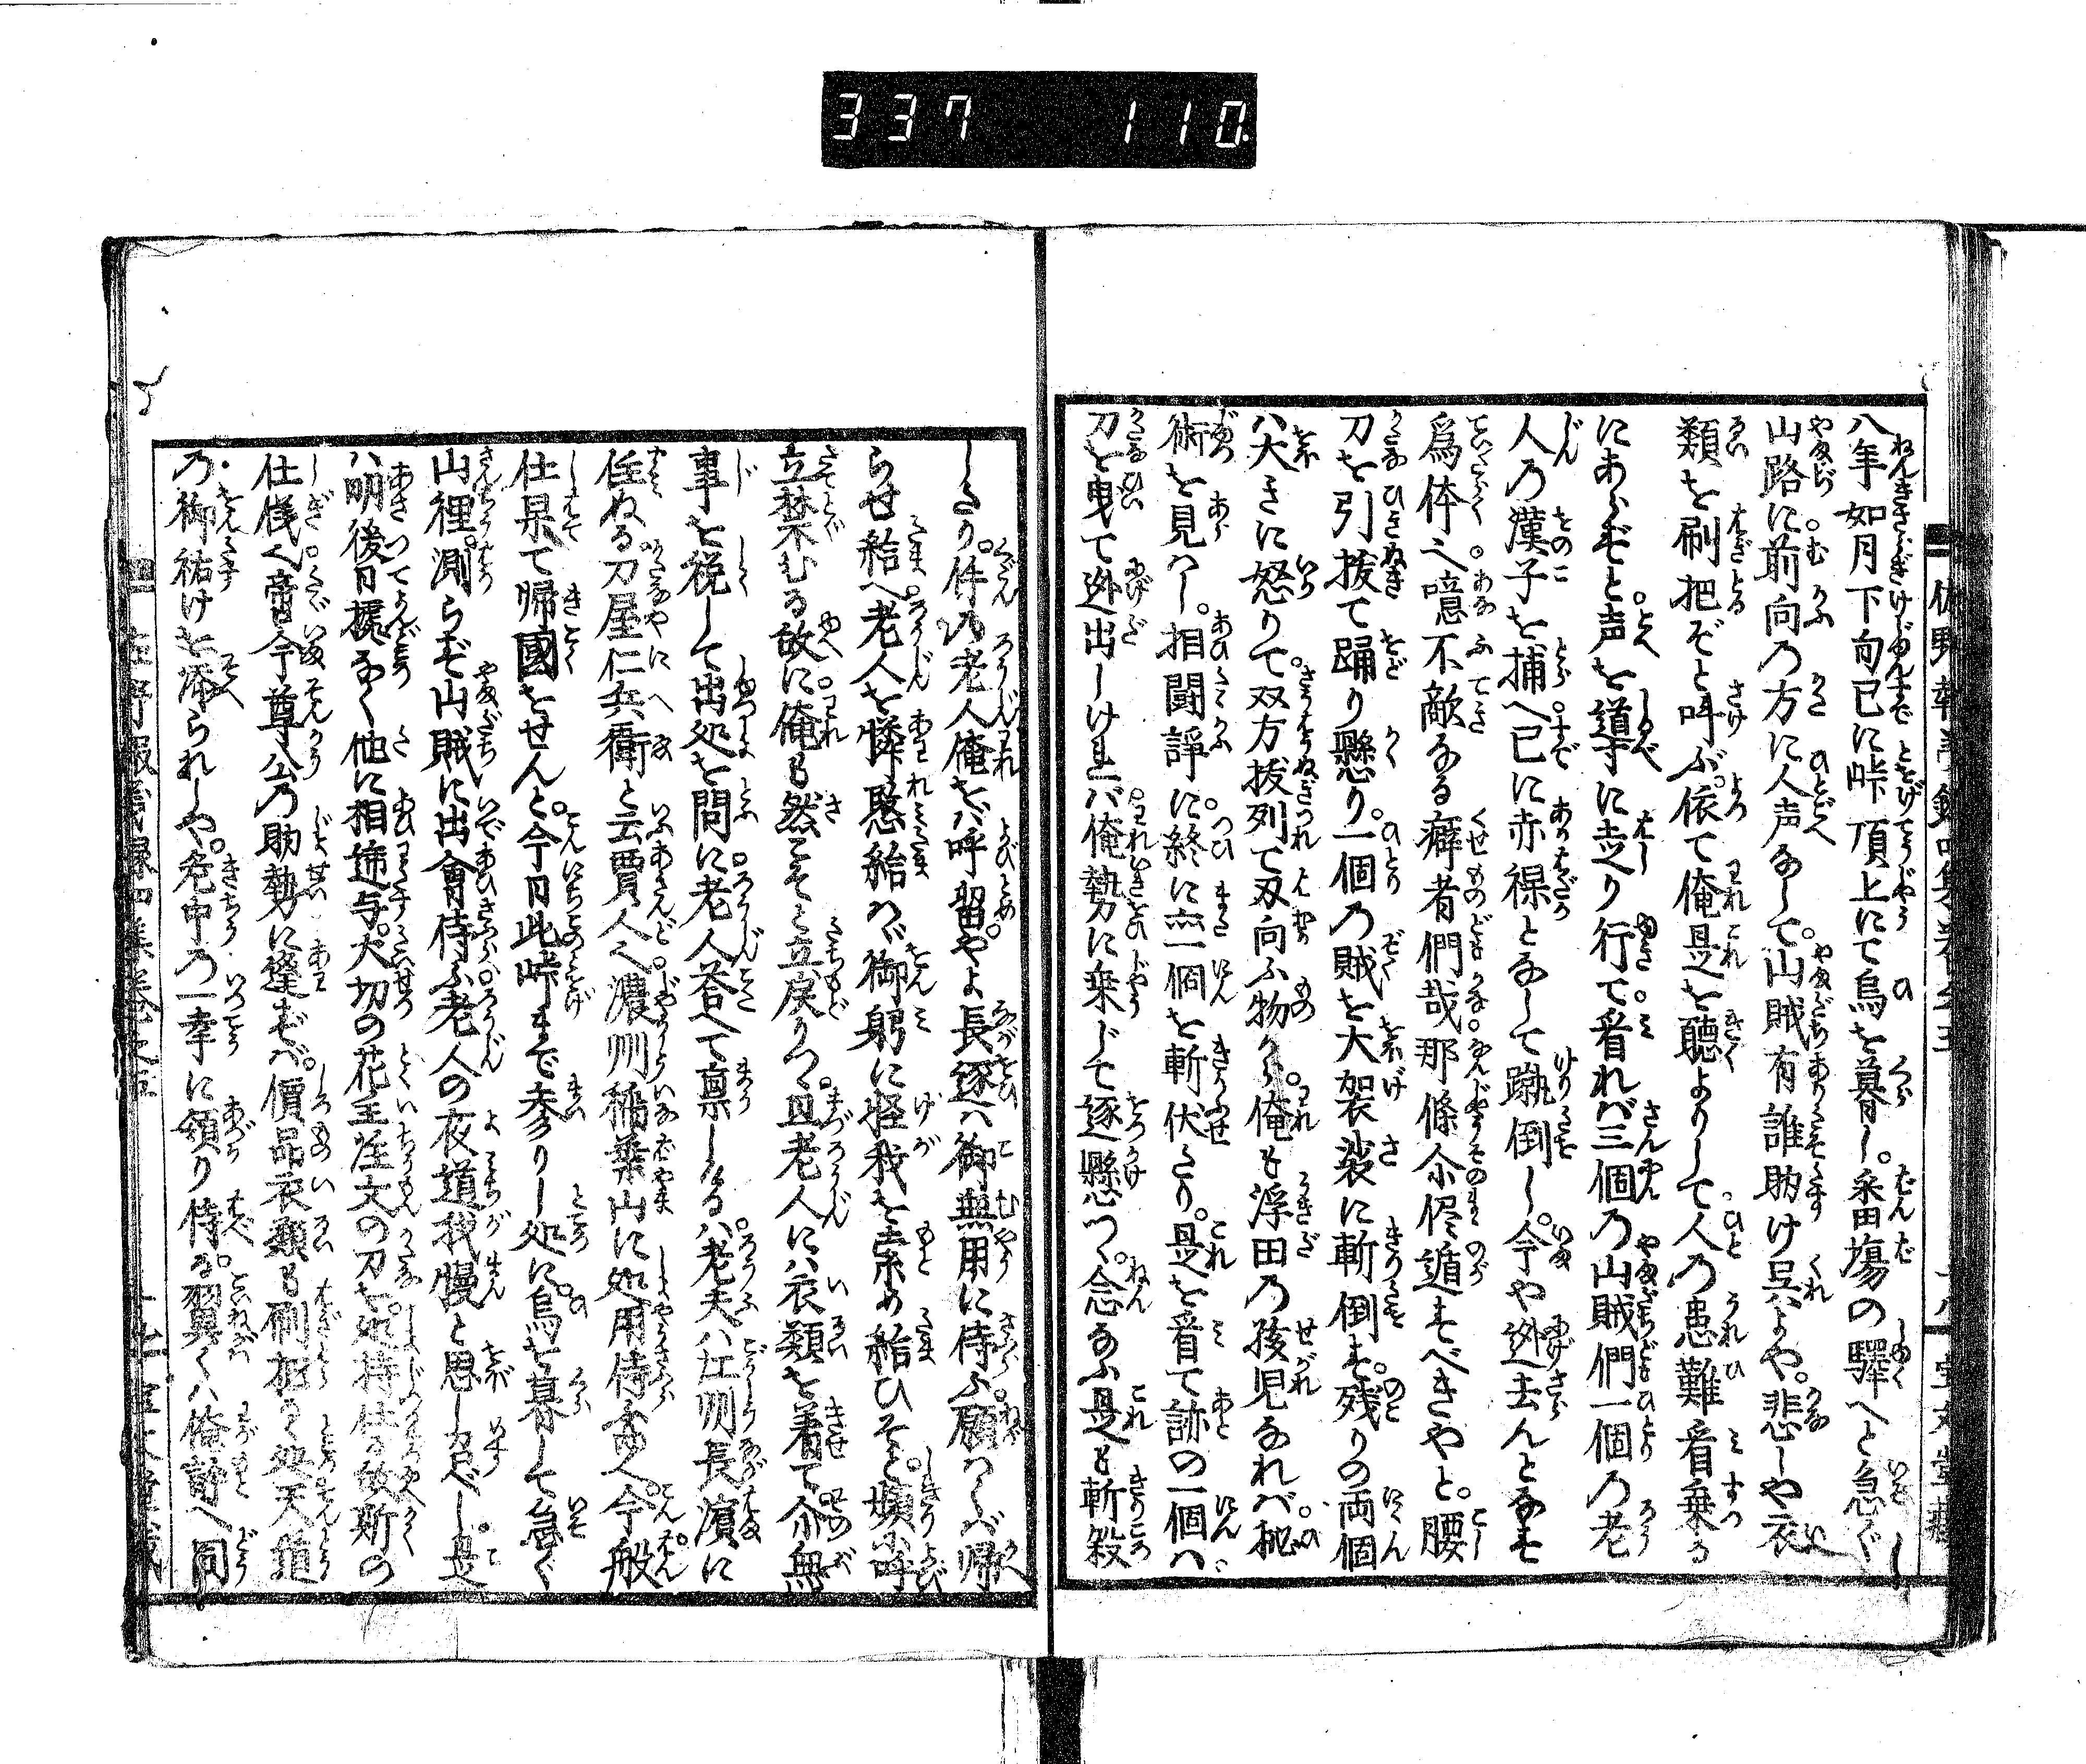 337 110
八年如月下旬已に峠頂上にて烏を暮し。番場の驛へと急ぐ
山路に前向の方に人声なして。山賊有誰助け呉よや。悲しや衣
類を剥把ぞと叫ぶ。依て俺是を聽よりして人の患難看乗る
にあらずと声を導に走り行て看れば三個の山賊們一個の老
人の漢子を捕へ已に赤裸となして蹴倒し。今や迯去んとなす
爲体に噫不敵なる癖者們哉那條尒侭遁すべきやと。腰
刀を引抜て踊り懸り。一個の賊を大袈裟に斬倒す。残りの両個
ハ大きに怒りて双方抜列て刃向ふ物から俺も浮田の孩児なれバ
術を見ハし。相闘諍に終に亦一個を斬伏たり。是を看て跡の一個ハ
刀を曳て迯出しければ俺勢に乗じて逐懸つゝ念なふ是も斬殺
したり。件の老人俺をバ呼畄やよ長逐ハ御無用に侍ふ願ハくバ帰
らせ給へ老人を憐愍給ハゞ御躬に怪我を素め給ひそと。頻に呼
立禁むる故に俺も然こそと立戻りつゝ且老人にハ衣類を着て尒無
事を祝して出処を問に老人荅へて禀しけるハ老夫ハ江州長濱に
住ぬる刀屋仁兵衛と云賈人之濃州稲葉山に処用侍ふ今般
仕果て帰國をせんと。今日此峠まで参りし処に烏を暮して急ぐ
山裡。測らず山賊に出會侍ふ老人の夜道我慢と思し召べし是
ハ明後日據なく他に相遞与。大切の花主注文の刀を処持仕る故斯の
仕儀く啻今尊公の助勢に逢ずバ。價品衣類も剥把るゝ処天道
の御祐けを添られしや。危中の一幸に領り侍る。翼くハ俺許へ同